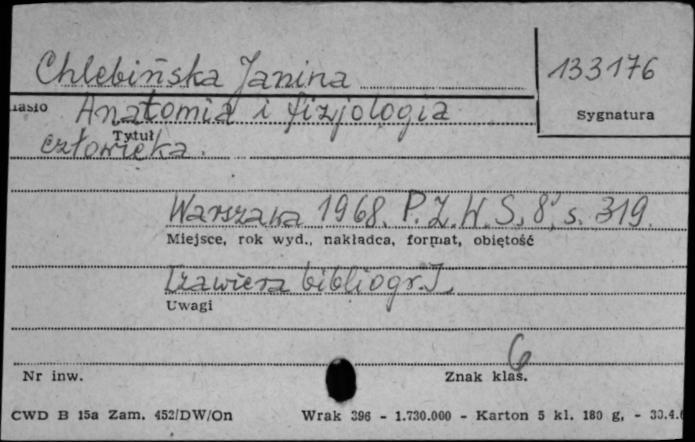 Chlebińska Janina
133176
Sygnatura
Hasło
Anatomia i fizjologia
Tytuł
człowieka.
Warszawa 1968. P.Z.W.S, 8°, s. 319.
Miejsce, rok wyd., nakładca, format, objętość
[zawiera bibliogr.].
Uwagi
6
Nr inw.
Znak klas.
CWD B 15a Zam. 452/DW/On Wrak 396 - 1.730.000 - Karton 5 kl. 180 g, - 30.4.6